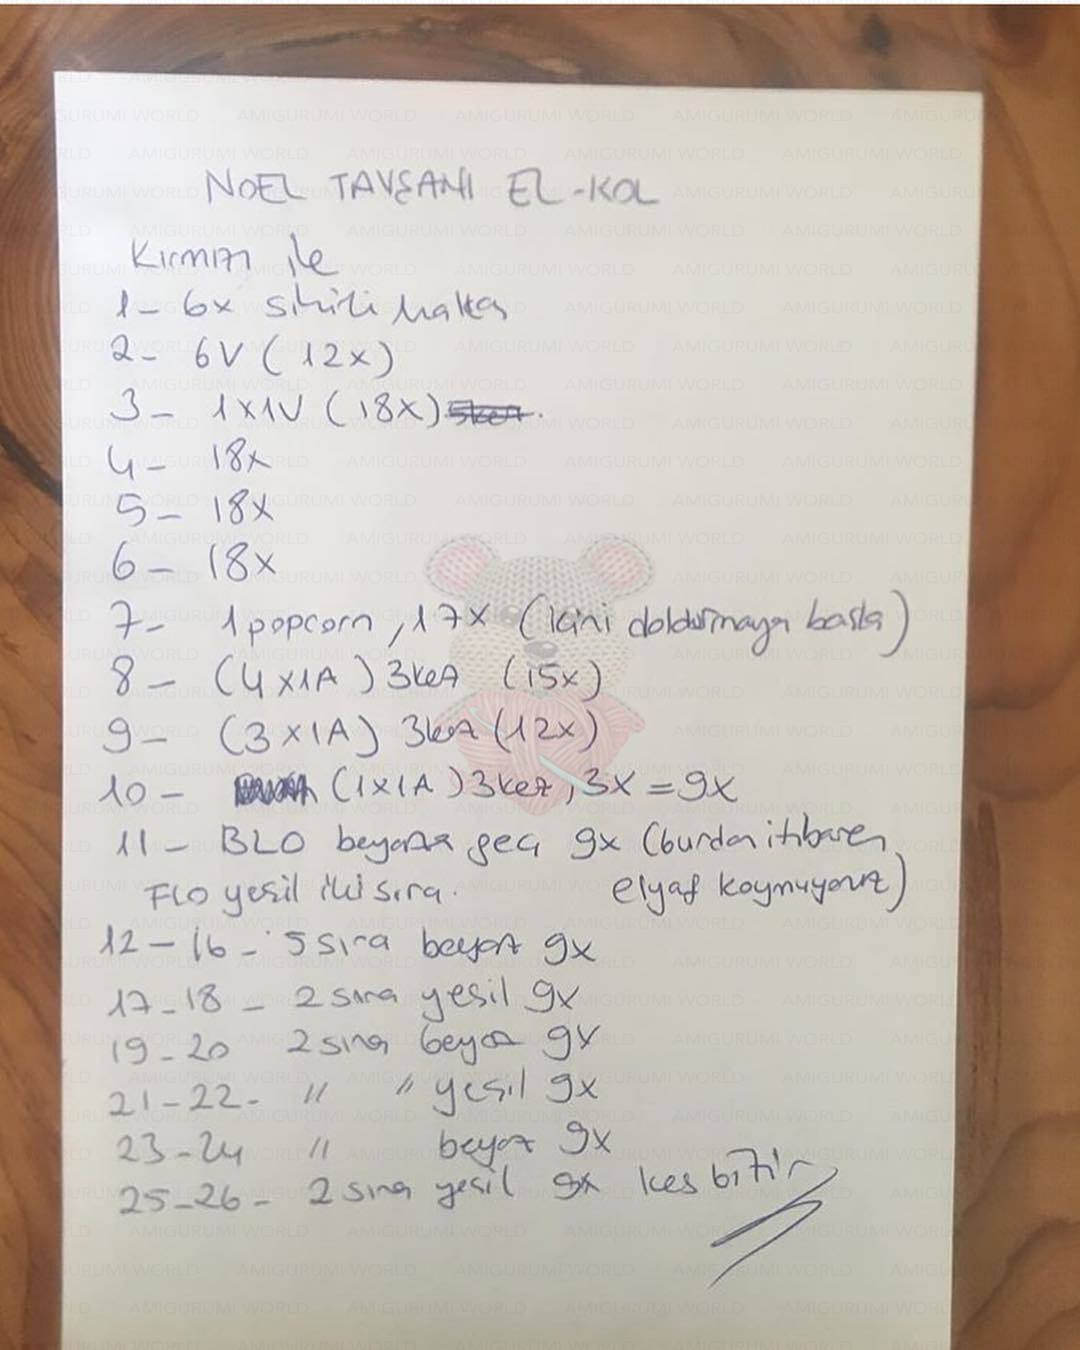 NOEL TAVŞANI EL-KOL
Kırmızı ile
1- 6x sihirli halka
2- 6V (12x)
3- 1x1V (18x)
4- 18x
5- 18x
6- 18x
7- 1 popcorn, 17x (İçini doldurmaya başla)
8- (4x1A) 3kez (15x)
9- (3x1A) 3kez (12x)
10- (1x1A) 3kez, 3x = 9x
11- BLO beyaza geç 9x (burdan itibaren
FLO yeşil iki sıra. elyaf koymuyoruz)
12-16- 5 sıra beyaz 9x
17-18- 2 sıra yeşil 9x
19-20 2 sıra beyaz 9x
21-22- " " yeşil 9x
23-24 " beyaz 9x
25-26- 2 sıra yeşil 9x kes bitir
AMIGURUMI WORLD